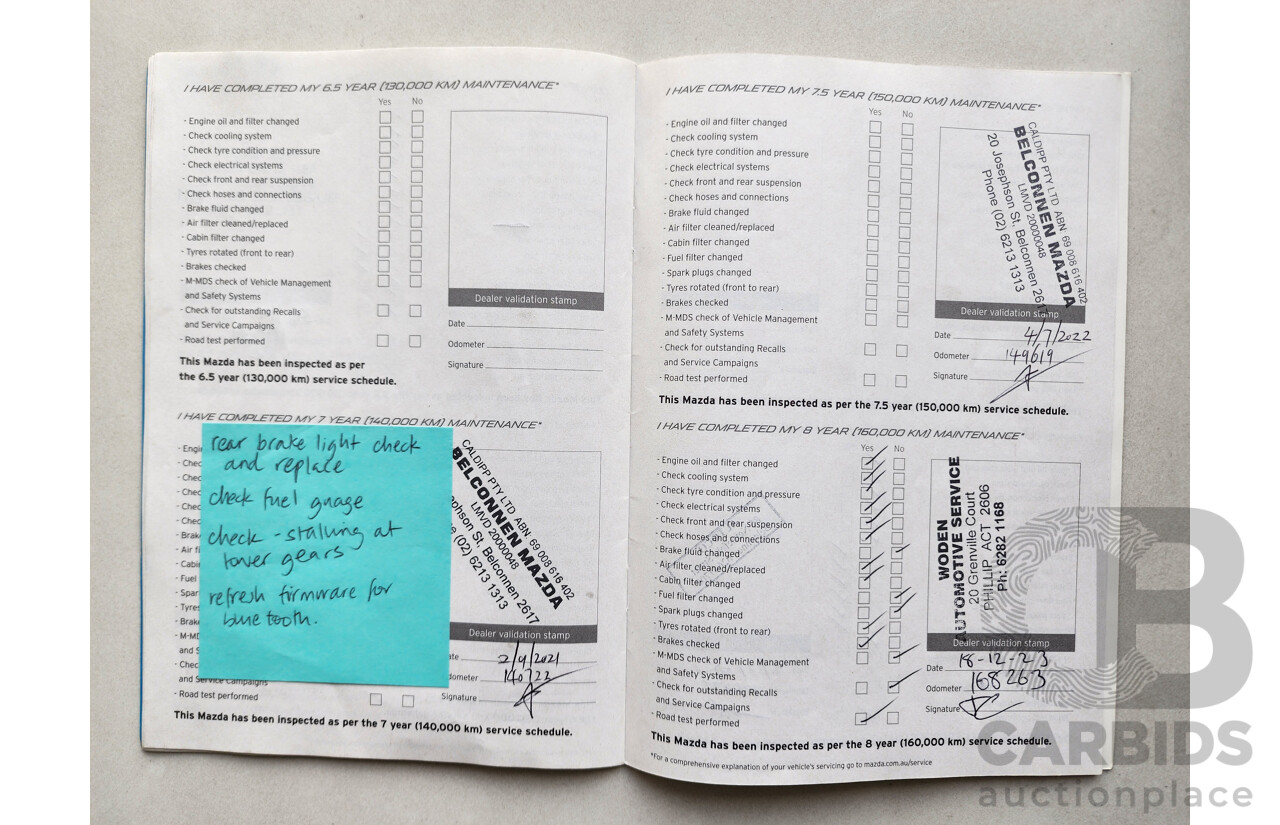 I HAVE COMPLETED MY 6.5 YEAR (130,000 KM) MAINTENANCE*
Yes No
- Engine oil and filter changed
- Check cooling system
- Check tyre condition and pressure
- Check electrical systems
- Check front and rear suspension
- Check hoses and connections
- Brake fluid changed
- Air filter cleaned/replaced
- Cabin filter changed
- Tyres rotated (front to rear)
- Brakes checked
- M-MDS check of Vehicle Management
and Safety Systems
- Check for outstanding Recalls
and Service Campaigns
- Road test performed
This Mazda has been inspected as per
the 6.5 year (130,000 km) service schedule.
Dealer validation stamp
Date
Odometer
Signature
I HAVE COMPLETED MY 7 YEAR (140,000 KM) MAINTENANCE*
rear brake light check
and replace
check fuel guage
check - stalling at
lower gears
refresh firmware for
blue tooth.
- Engi
- Chec
- Chec
- Chec
- Chec
- Chec
- Brak
- Air fi
- Cabi
- Fuel
- Spar
- Tyre
- Brak
- M-MD
and S
- Chec
and Service Campaigns
- Road test performed
CALDIPP PTY LTD ABN: 69 008 616 402
BELCONNEN MAZDA
LMVD 20000048
ephson St. Belconnen 2617
(02) 6213 1313
Dealer validation stamp
ate 2/9/2021
dometer 140722
Signature
This Mazda has been inspected as per the 7 year (140,000 km) service schedule.
I HAVE COMPLETED MY 7.5 YEAR (150,000 KM) MAINTENANCE*
Yes No
- Engine oil and filter changed
- Check cooling system
- Check tyre condition and pressure
- Check electrical systems
- Check front and rear suspension
- Check hoses and connections
- Brake fluid changed
- Air filter cleaned/replaced
- Cabin filter changed
- Fuel filter changed
- Spark plugs changed
- Tyres rotated (front to rear)
- Brakes checked
- M-MDS check of Vehicle Management
and Safety Systems
- Check for outstanding Recalls
and Service Campaigns
- Road test performed
CALDIPP PTY LTD ABN: 69 008 616 402
BELCONNEN MAZDA
LMVD 20000048
20 Josephson St. Belconnen 2617
Phone (02) 6213 1313
Dealer validation stamp
Date 4/7/2022
Odometer 149619
Signature
This Mazda has been inspected as per the 7.5 year (150,000 km) service schedule.
I HAVE COMPLETED MY 8 YEAR (160,000 KM) MAINTENANCE*
Yes No
- Engine oil and filter changed
- Check cooling system
- Check tyre condition and pressure
- Check electrical systems
- Check front and rear suspension
- Check hoses and connections
- Brake fluid changed
- Air filter cleaned/replaced
- Cabin filter changed
- Fuel filter changed
- Spark plugs changed
- Tyres rotated (front to rear)
- Brakes checked
- M-MDS check of Vehicle Management
and Safety Systems
- Check for outstanding Recalls
and Service Campaigns
- Road test performed
WODEN
AUTOMOTIVE SERVICE
20 Grenville Court
PHILLIP ACT 2606
Ph: 6282 1168
Dealer validation stamp
Date 18-12-23
Odometer 168263
Signature
This Mazda has been inspected as per the 8 year (160,000 km) service schedule.
*For a comprehensive explanation of your vehicle's servicing go to mazda.com.au/service
CB
CARBIDS
auctionplace